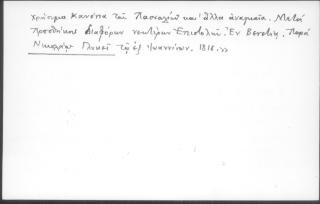 χρήσιμα κανόνια τοῦ Πασχαλίου καὶ ἄλλα ἀναγκαῖα. Μετὰ
Προσθήκης διαφόρων νεωτέρων Ἐπιστολῶν. Ἐν Βενετίᾳ. Παρὰ
Νικολάῳ Γλυκεῖ τῷ ἐξ Ἰωαννίνων. 1818.»